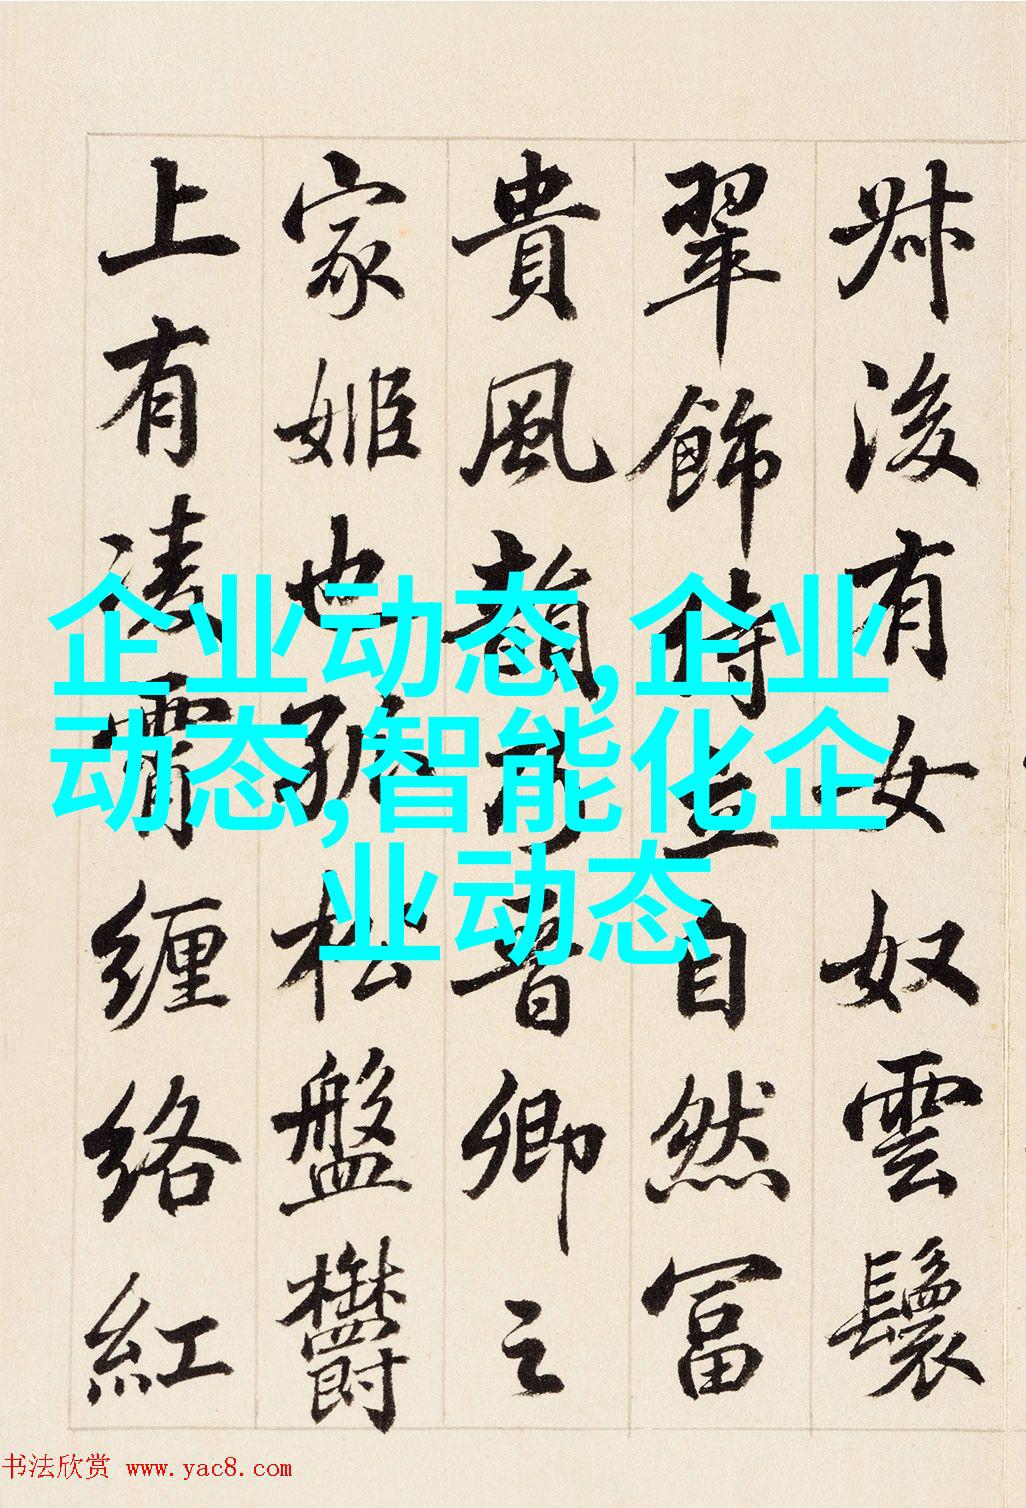 牀後有女奴雲鬟
翠飾侍立自然富
貴風韻乃晉卿之
家姬也孤松盤欝
上有凌霄纏絡紅
企业动态,企业
动态,智能化企
业动态
书法欣赏 www.yac8.com